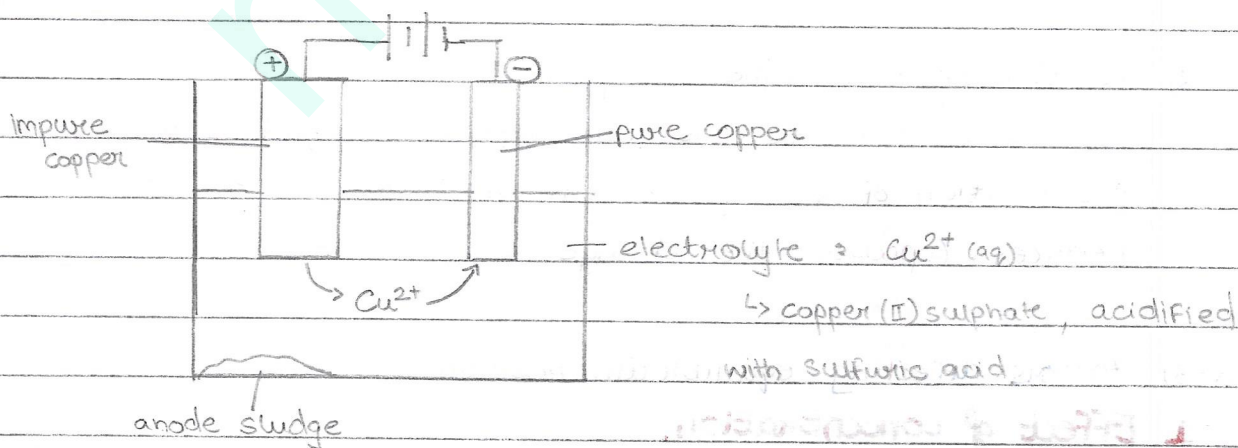 +
−
impure
copper
pure copper
electrolyte : Cu²⁺ (aq)
Cu²⁺
↳ copper (II) sulphate, acidified
with sulfuric acid.
anode sludge